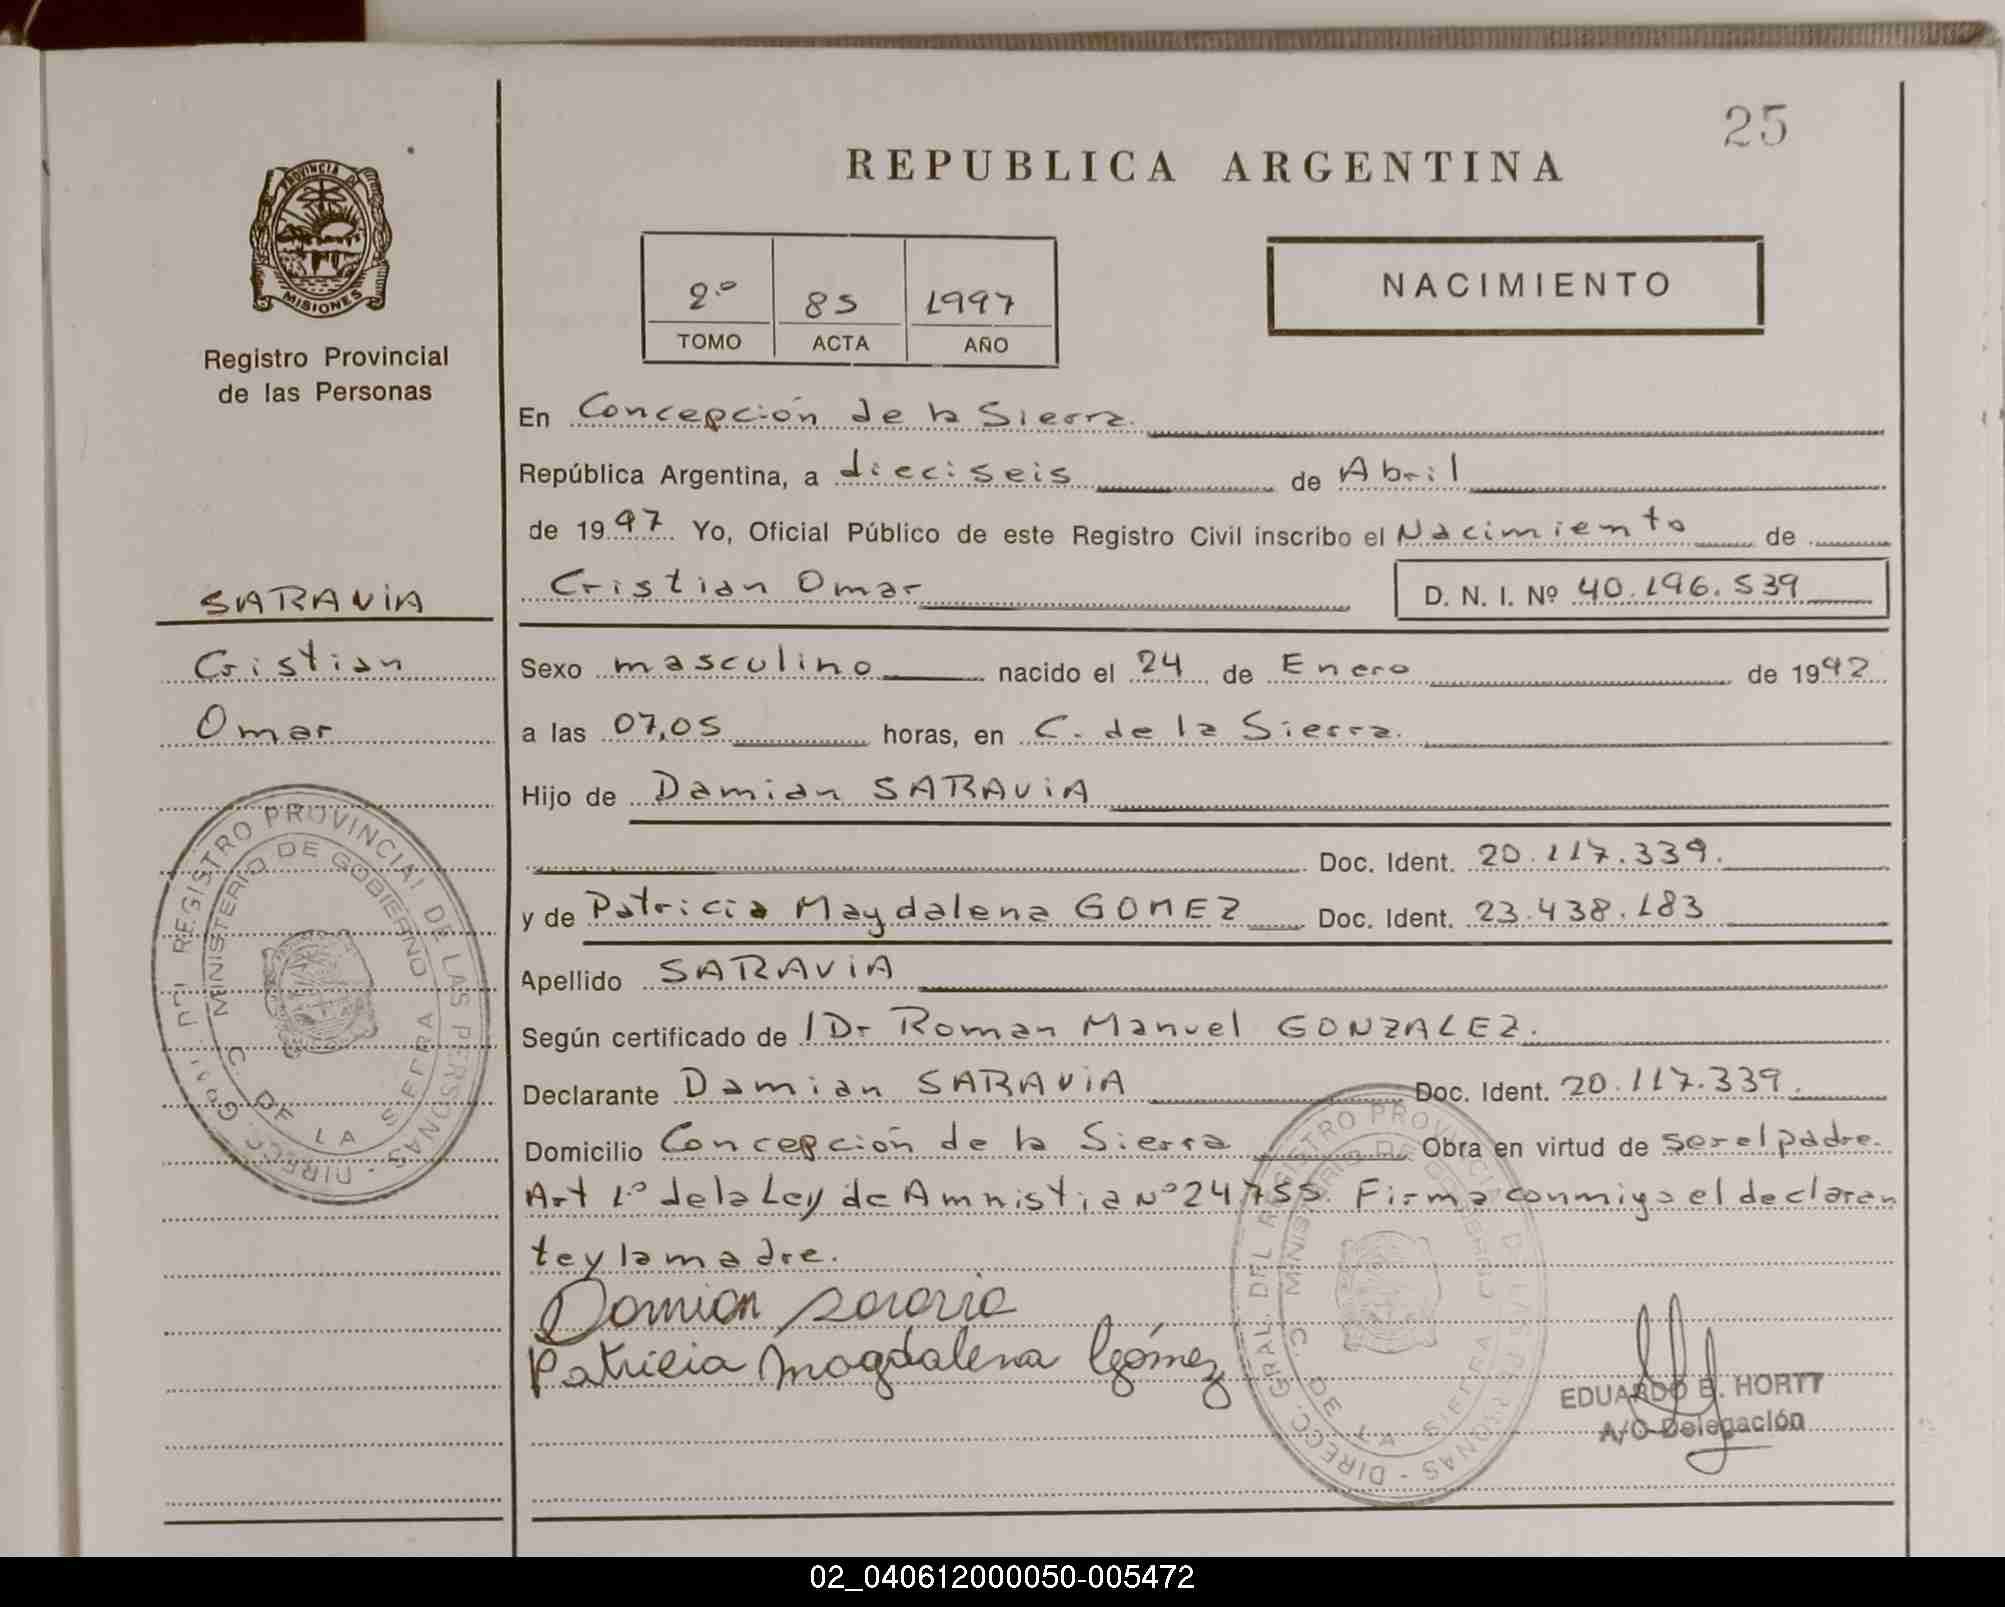 25
REPUBLICA ARGENTINA
PROVINCIA DE
MISIONES
Registro Provincial
de las Personas
2º 85 1997
TOMO ACTA AÑO
NACIMIENTO
En Concepción de la Sierra.
República Argentina, a dieciseis de Abril
de 1997 Yo, Oficial Público de este Registro Civil inscribo el Nacimiento de
Cristian Omar D. N. I. Nº 40.196.539
SARAVIA
Cristian
Omar
Sexo masculino nacido el 24 de Enero de 1992
a las 07,05 horas, en C. de la Sierra.
Hijo de Damian SARAVIA
Doc. Ident. 20.117.339.
y de Patricia Magdalena GOMEZ Doc. Ident. 23.438.183
Apellido SARAVIA
Según certificado de l Dr Roman Manuel GONZALEZ.
Declarante Damian SARAVIA Doc. Ident. 20.117.339.
Domicilio Concepción de la Sierra Obra en virtud de ser el padre.
Art 1º de la Ley de Amnistia Nº 24755. Firma conmigo el declaran
te y la madre.
Damian Saravia
Patricia Magdalena Gómez
EDUARDO E. HORTT
A/C Delegación
DIRECC. GRAL. DEL REGISTRO PROVINCIAL DE LAS PERSONAS
MINISTERIO DE GOBIERNO
C. DE LA SIERRA
DIRECC. GRAL. DEL REGISTRO PROVINCIAL DE LAS PERSONAS
MINISTERIO DE GOBIERNO
C. DE LA SIERRA
02_040612000050-005472